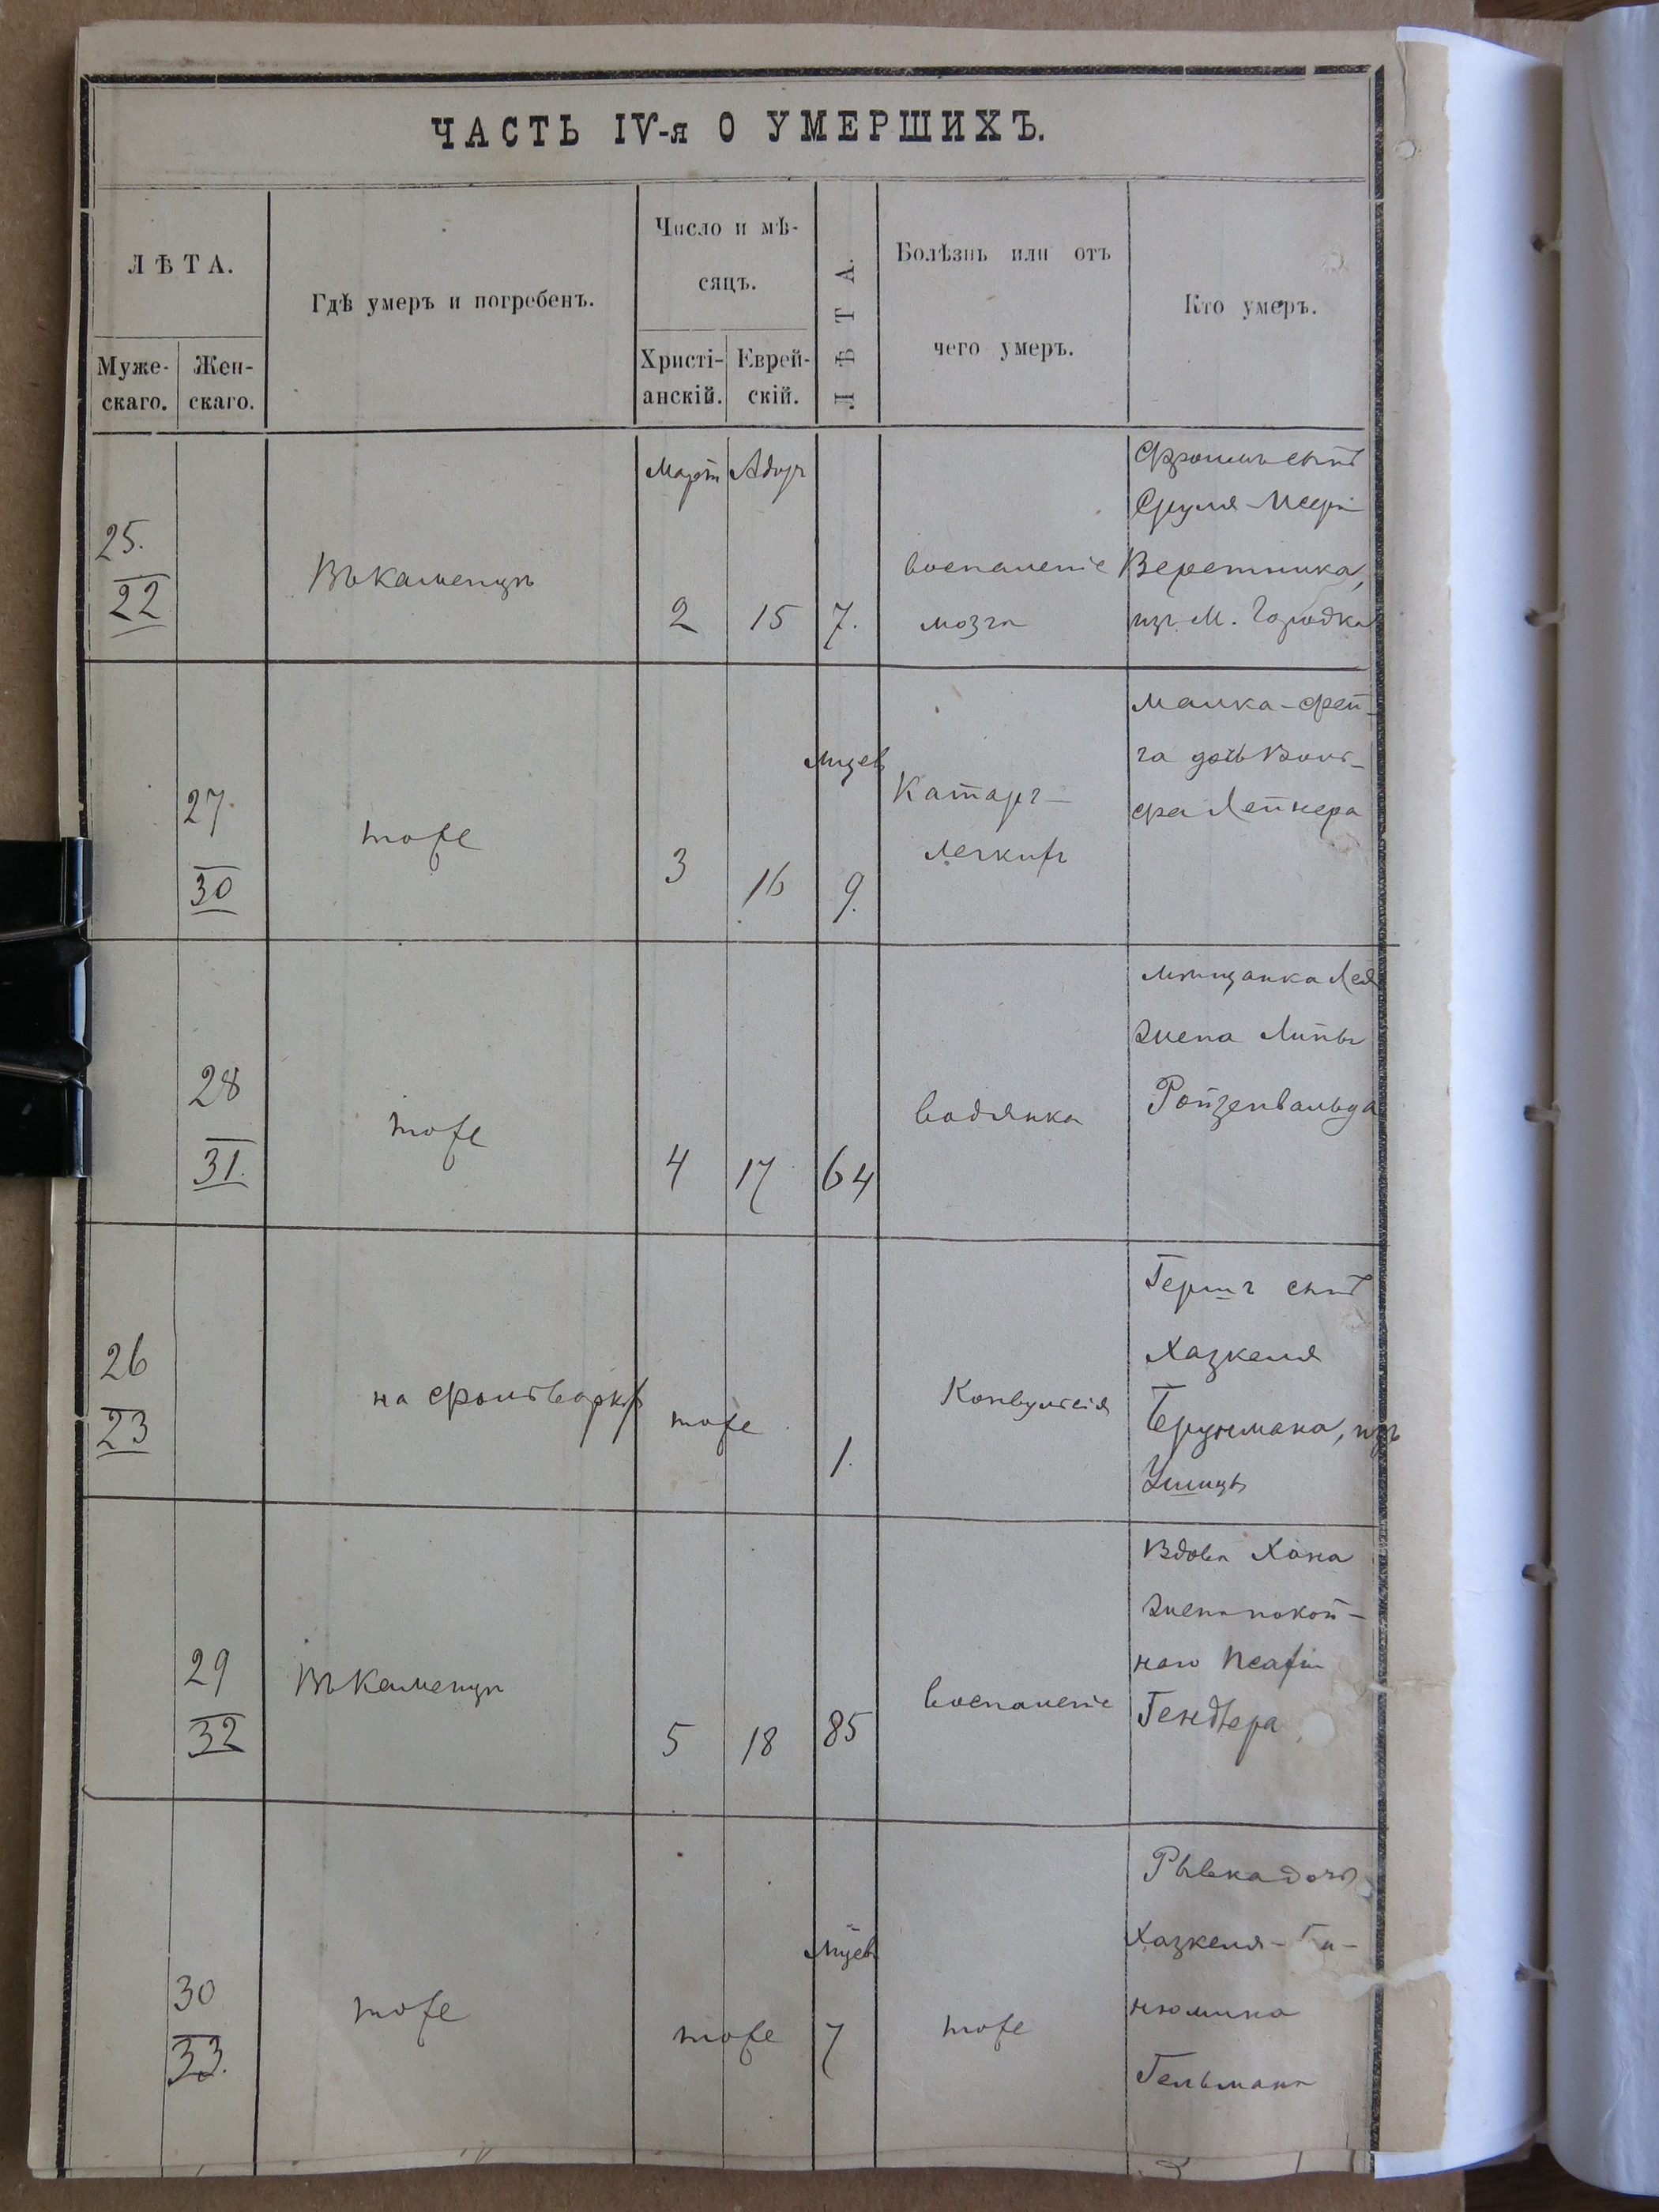 ЧАСТЬ IV-я О УМЕРШИХЪ.
ЛѢТА.
Муже-
скаго.
Жен-
скаго.
Гдѣ умеръ и погребенъ.
Число и мѣ-
сяцъ.
Христі-
анскій.
Еврей-
скій.
ЛѢТА.
Болѣзнь или отъ
чего умеръ.
Кто умеръ.
25.
22
Въ Каменцѣ
Март Адоръ
2 15 7.
воспаленіе
мозга
Фроимъ сынъ
Сруля-Меера
Веретника,
изъ М. Городка
27
30
тоже
3 16
мѣсяцев
9.
Катарръ
легкихъ
Малка-Фей-
га дочь Воль-
фа Лейнера
28
31.
тоже
4 17 64
водянка
мѣщанка Лея
жена Липы
Ройзенвальда
26
23
на фольваркѣ
тоже
1.
Конвульсія
Гершъ сынъ
Хазкеля
Ушицы
29
32
Въ Каменцѣ
5 18 85
воспаленіе
Вдова Хана
жена покой-
наго
30
33.
тоже
тоже
мѣсяцев
7
тоже
Рывка дочь
Хазкеля-
нюмина
Гельмана